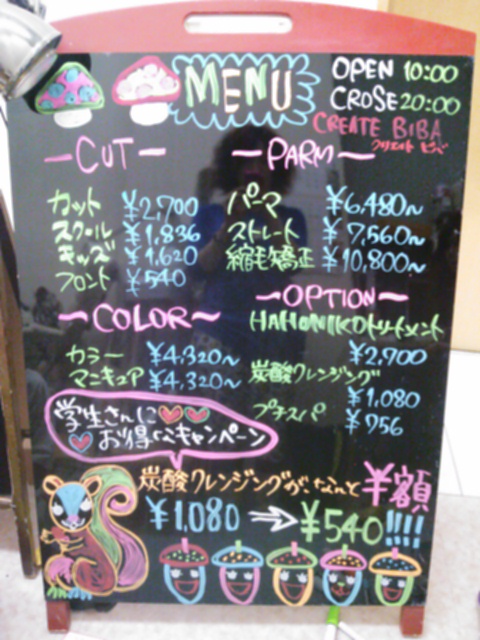 MENU
OPEN 10:00
CROSE 20:00
CREATE BIBA
クリエイト ビバ
CUT
カット ¥2,700
スクール ¥1,836
キッズ ¥1,620
フロント ¥540
PARM
パーマ ¥6,480~
ストレート ¥7,560~
縮毛矯正 ¥10,800~
COLOR
カラー ¥4,320~
マニキュア ¥4,320~
OPTION
HAHONIKOトリートメント
¥2,700
炭酸クレンジング
¥1,080
プチスパ ¥756
学生さんに
お得なキャンペーン
炭酸クレンジングが、なんと半額
¥1,080 ⇒ ¥540!!!!